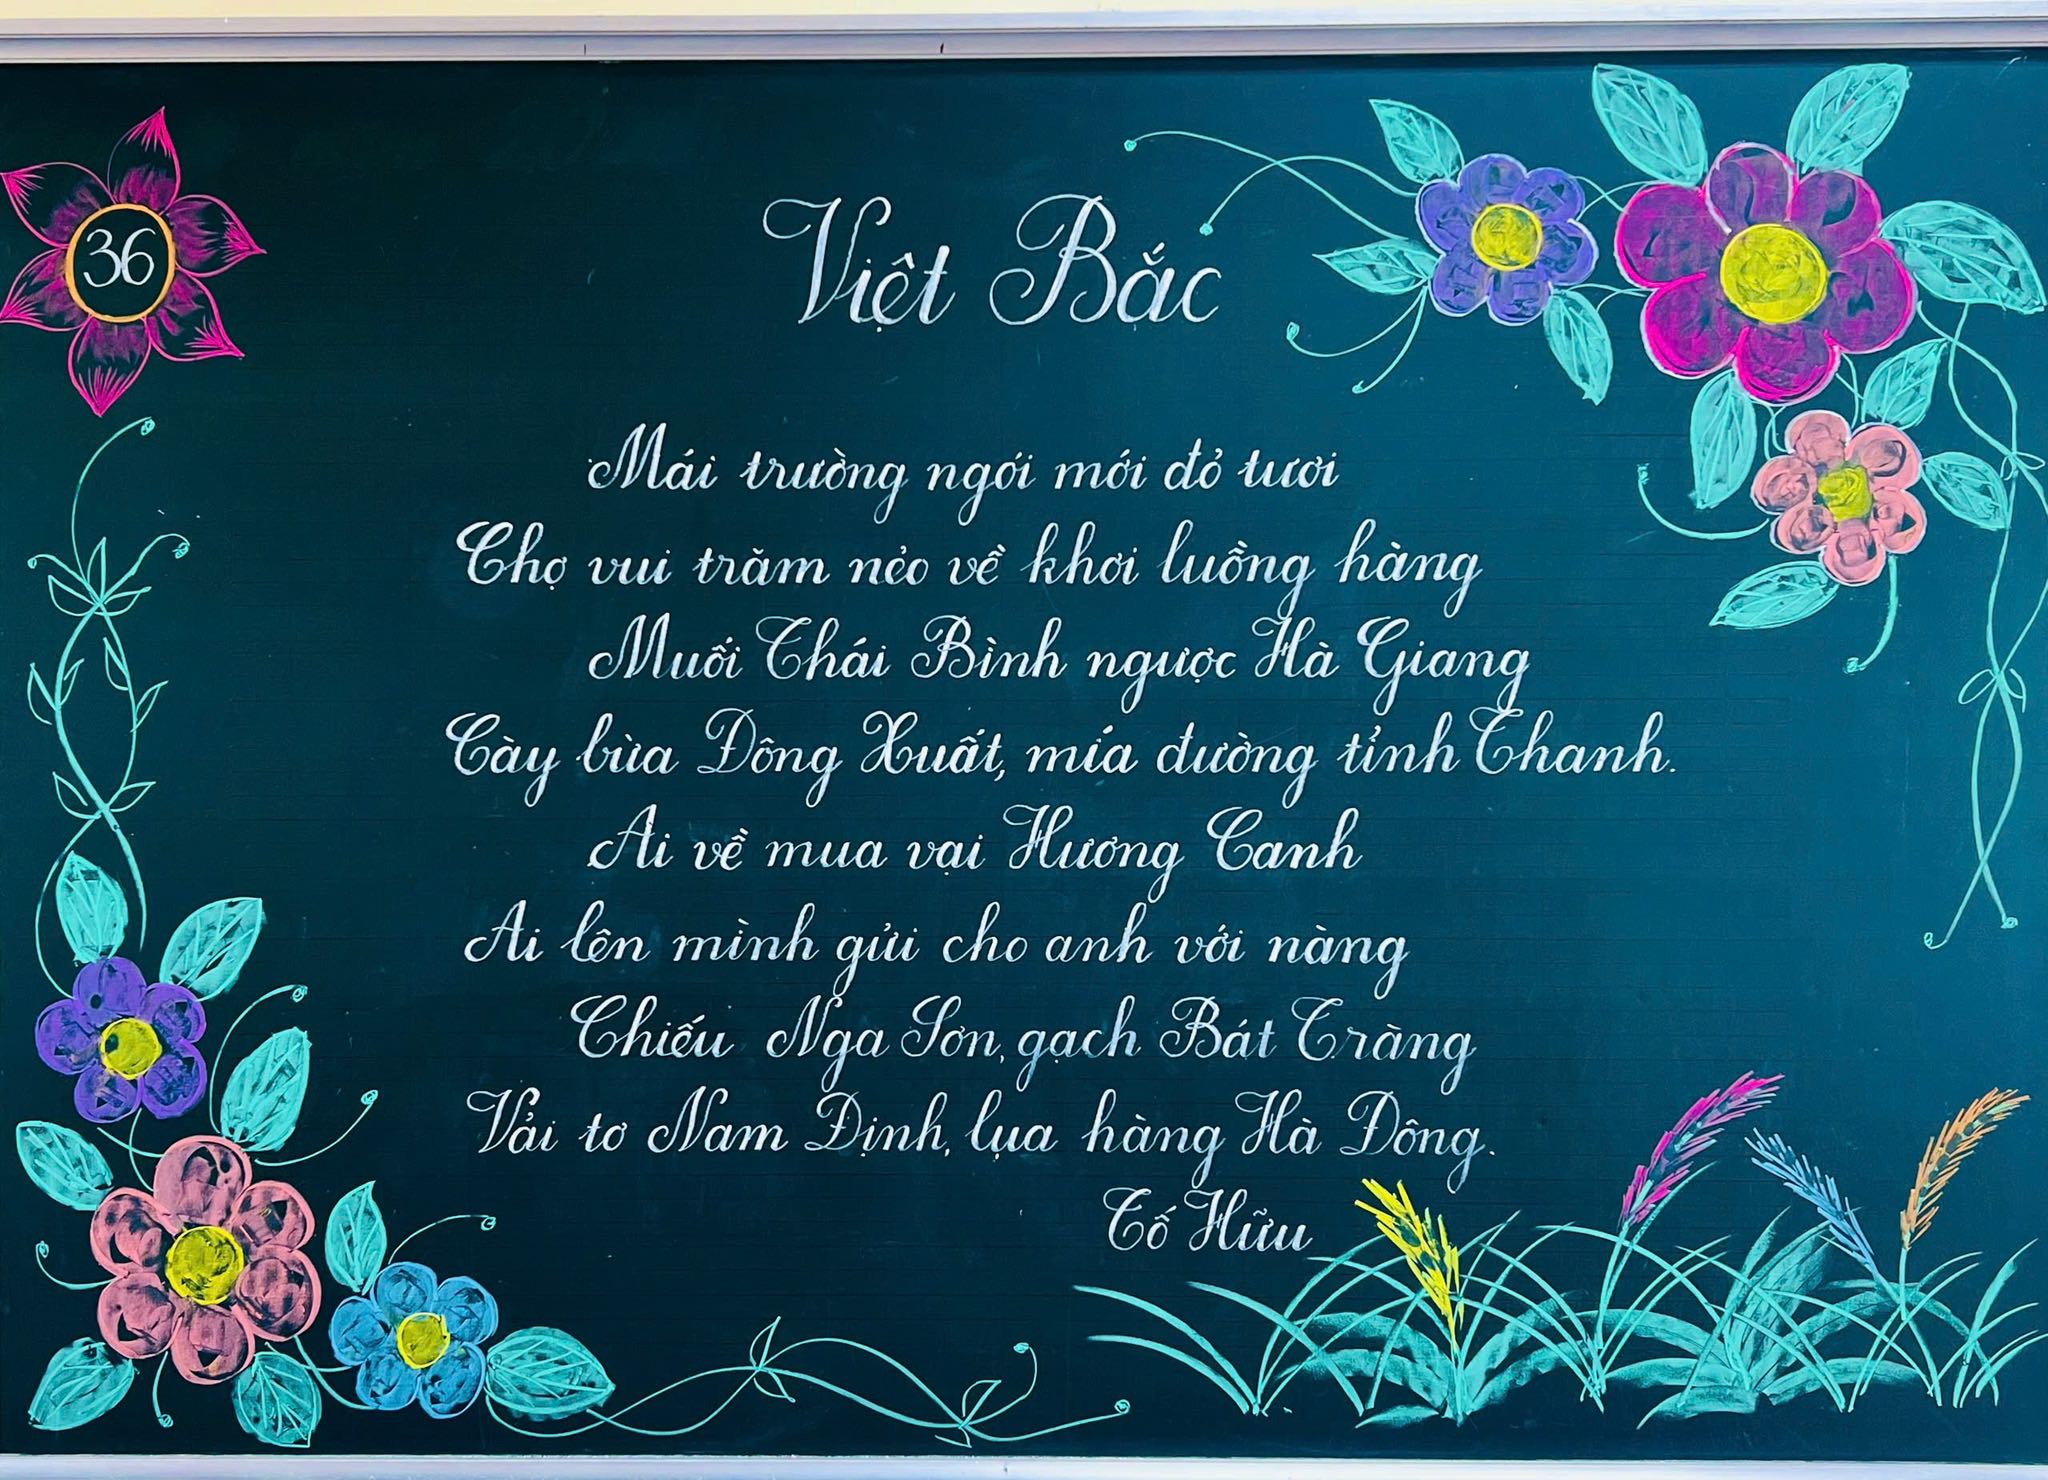 36
Việt Bắc
Mái trường ngói mới đỏ tươi
Chợ vui trăm nẻo về khơi luồng hàng
Muối Thái Bình ngược Hà Giang
Cày bừa Đông Xuất, mía đường tỉnh Thanh.
Ai về mua vại Hương Canh
Ai lên mình gửi cho anh với nàng
Chiếu Nga Sơn, gạch Bát Tràng
Vải tơ Nam Định, lụa hàng Hà Đông.
Tố Hữu